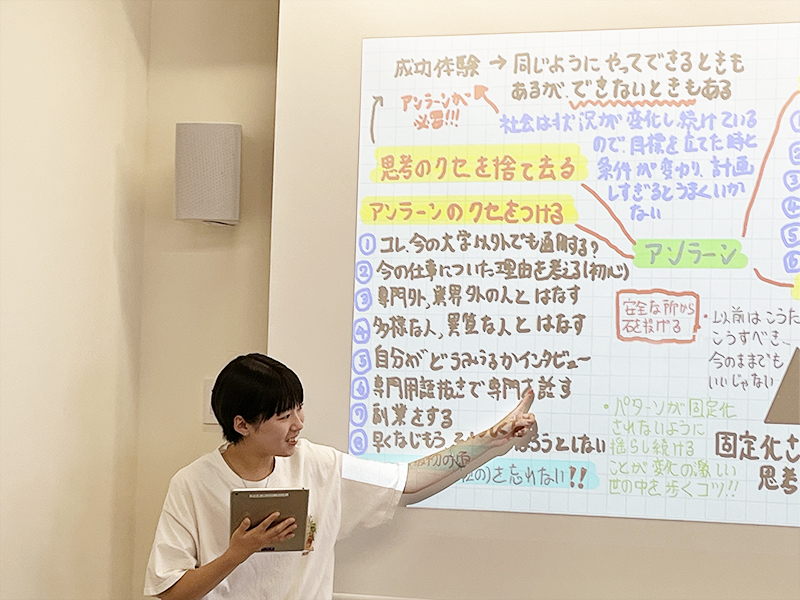 成功体験 → 同じようにやってできるときも
あるが、できないときもある
アンラーンが
必要!!!
社会は状況が変化し続けている
ので、目標を立てた時と
条件が変わり、計画
しすぎるとうまくいか
ない
思考のクセを捨て去る
アンラーンのクセをつける
① コレ、今の大学以外でも通用する?
② 今の仕事についた理由を考える(初心)
③ 専門外、業界外の人とはなす
④ 多様な人、異質な人とはなす
⑤ 自分がどうみうるかインタビュー
⑥ 専門用語抜きで専門を話す
⑦ 副業をする
⑧ 早くなじもう、
ろうとしない
を忘れない!!
アンラーン
安全な所から
石を投げる
・以前はこうた
こうすべき、
今のままでも
いいじゃない
・パターンが固定化
されないように
揺らし続ける
ことが変化の激しい
世の中を歩くコツ!!
固定化さ
思考